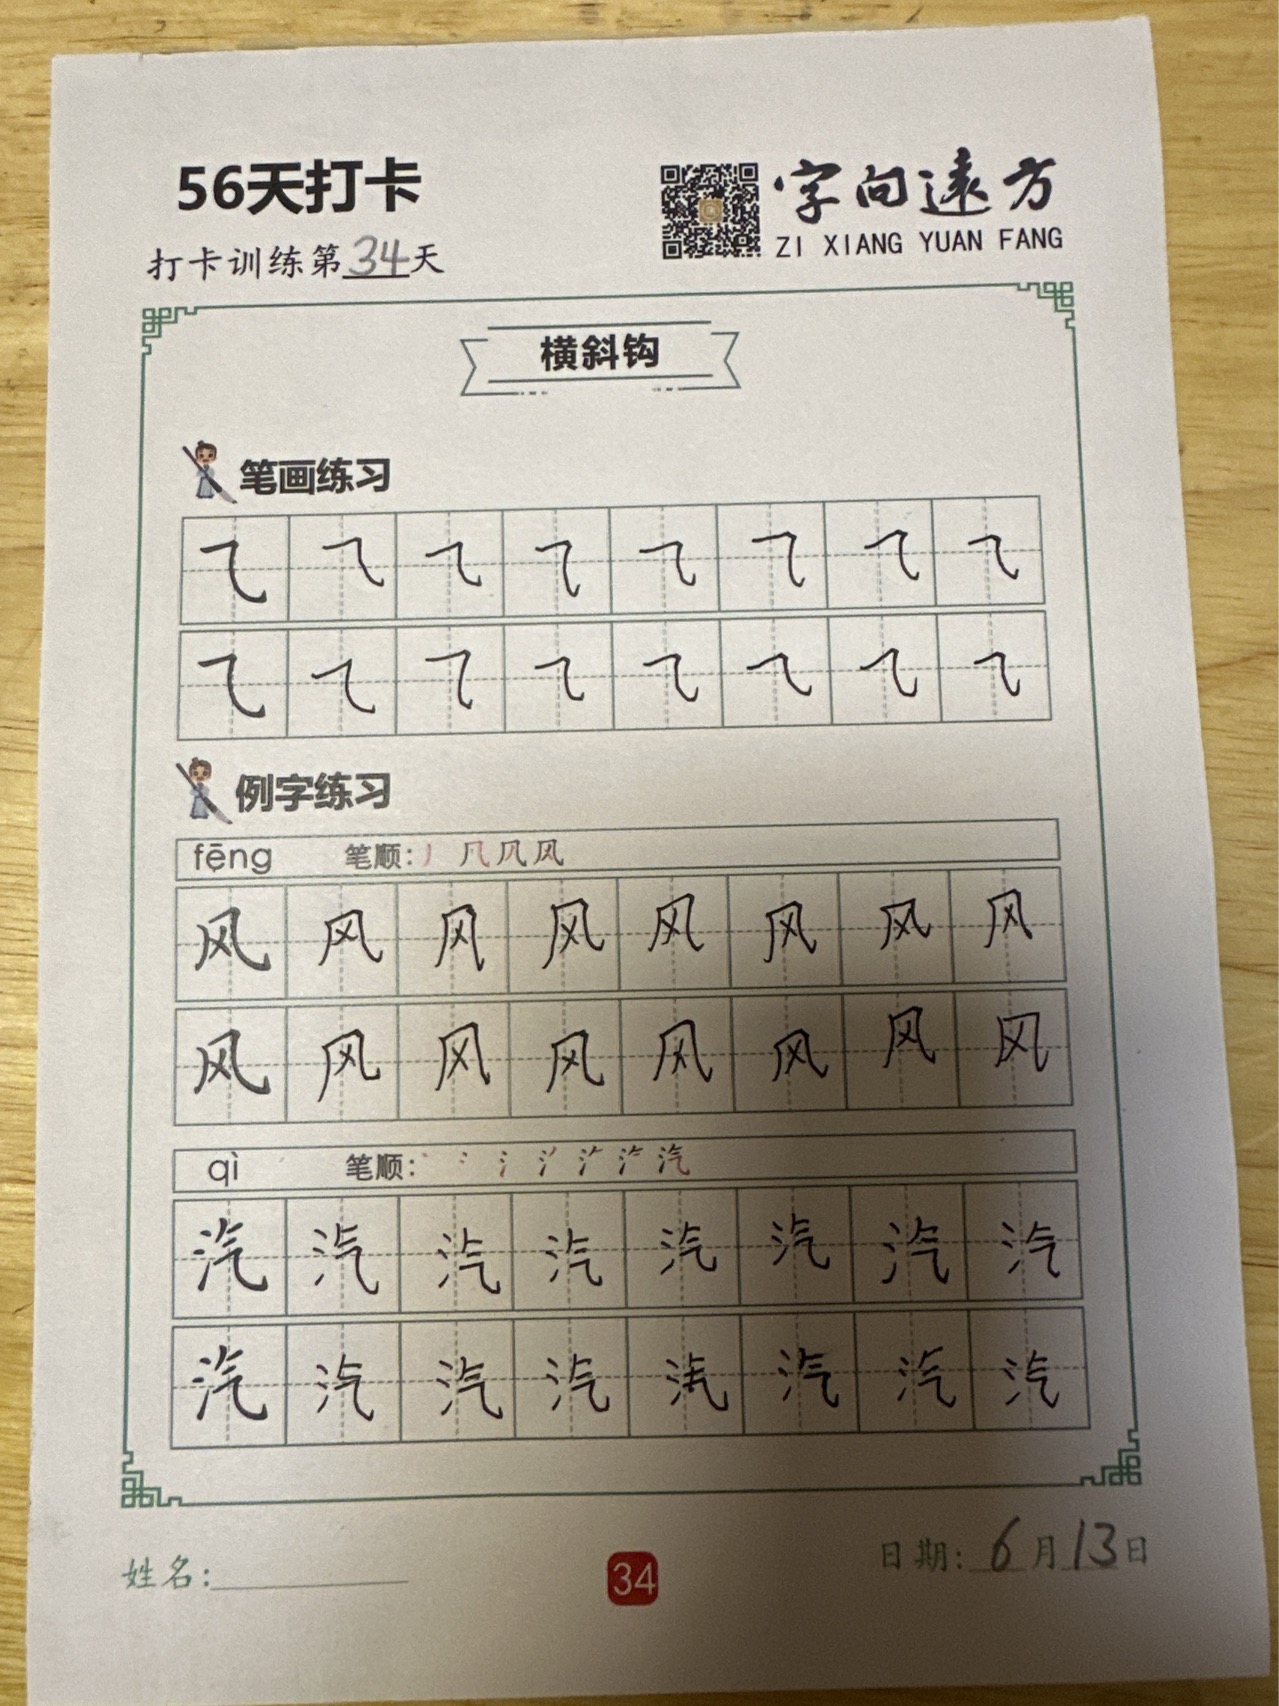 56天打卡
字向远方
ZI XIANG YUAN FANG
打卡训练第34天
横斜钩
笔画练习
⺄ ⺄ ⺄ ⺄ ⺄ ⺄ ⺄ ⺄
⺄ ⺄ ⺄ ⺄ ⺄ ⺄ ⺄ ⺄
例字练习
fēng 笔顺: 丿 ⺇ 风
风 风 风 风 风 风 风 风
风 风 风 风 风 风 风 风
qì 笔顺: 汽
汽 汽 汽 汽 汽 汽 汽 汽
汽 汽 汽 汽 汽 汽 汽 汽
姓名:
34
日期: 6月13日